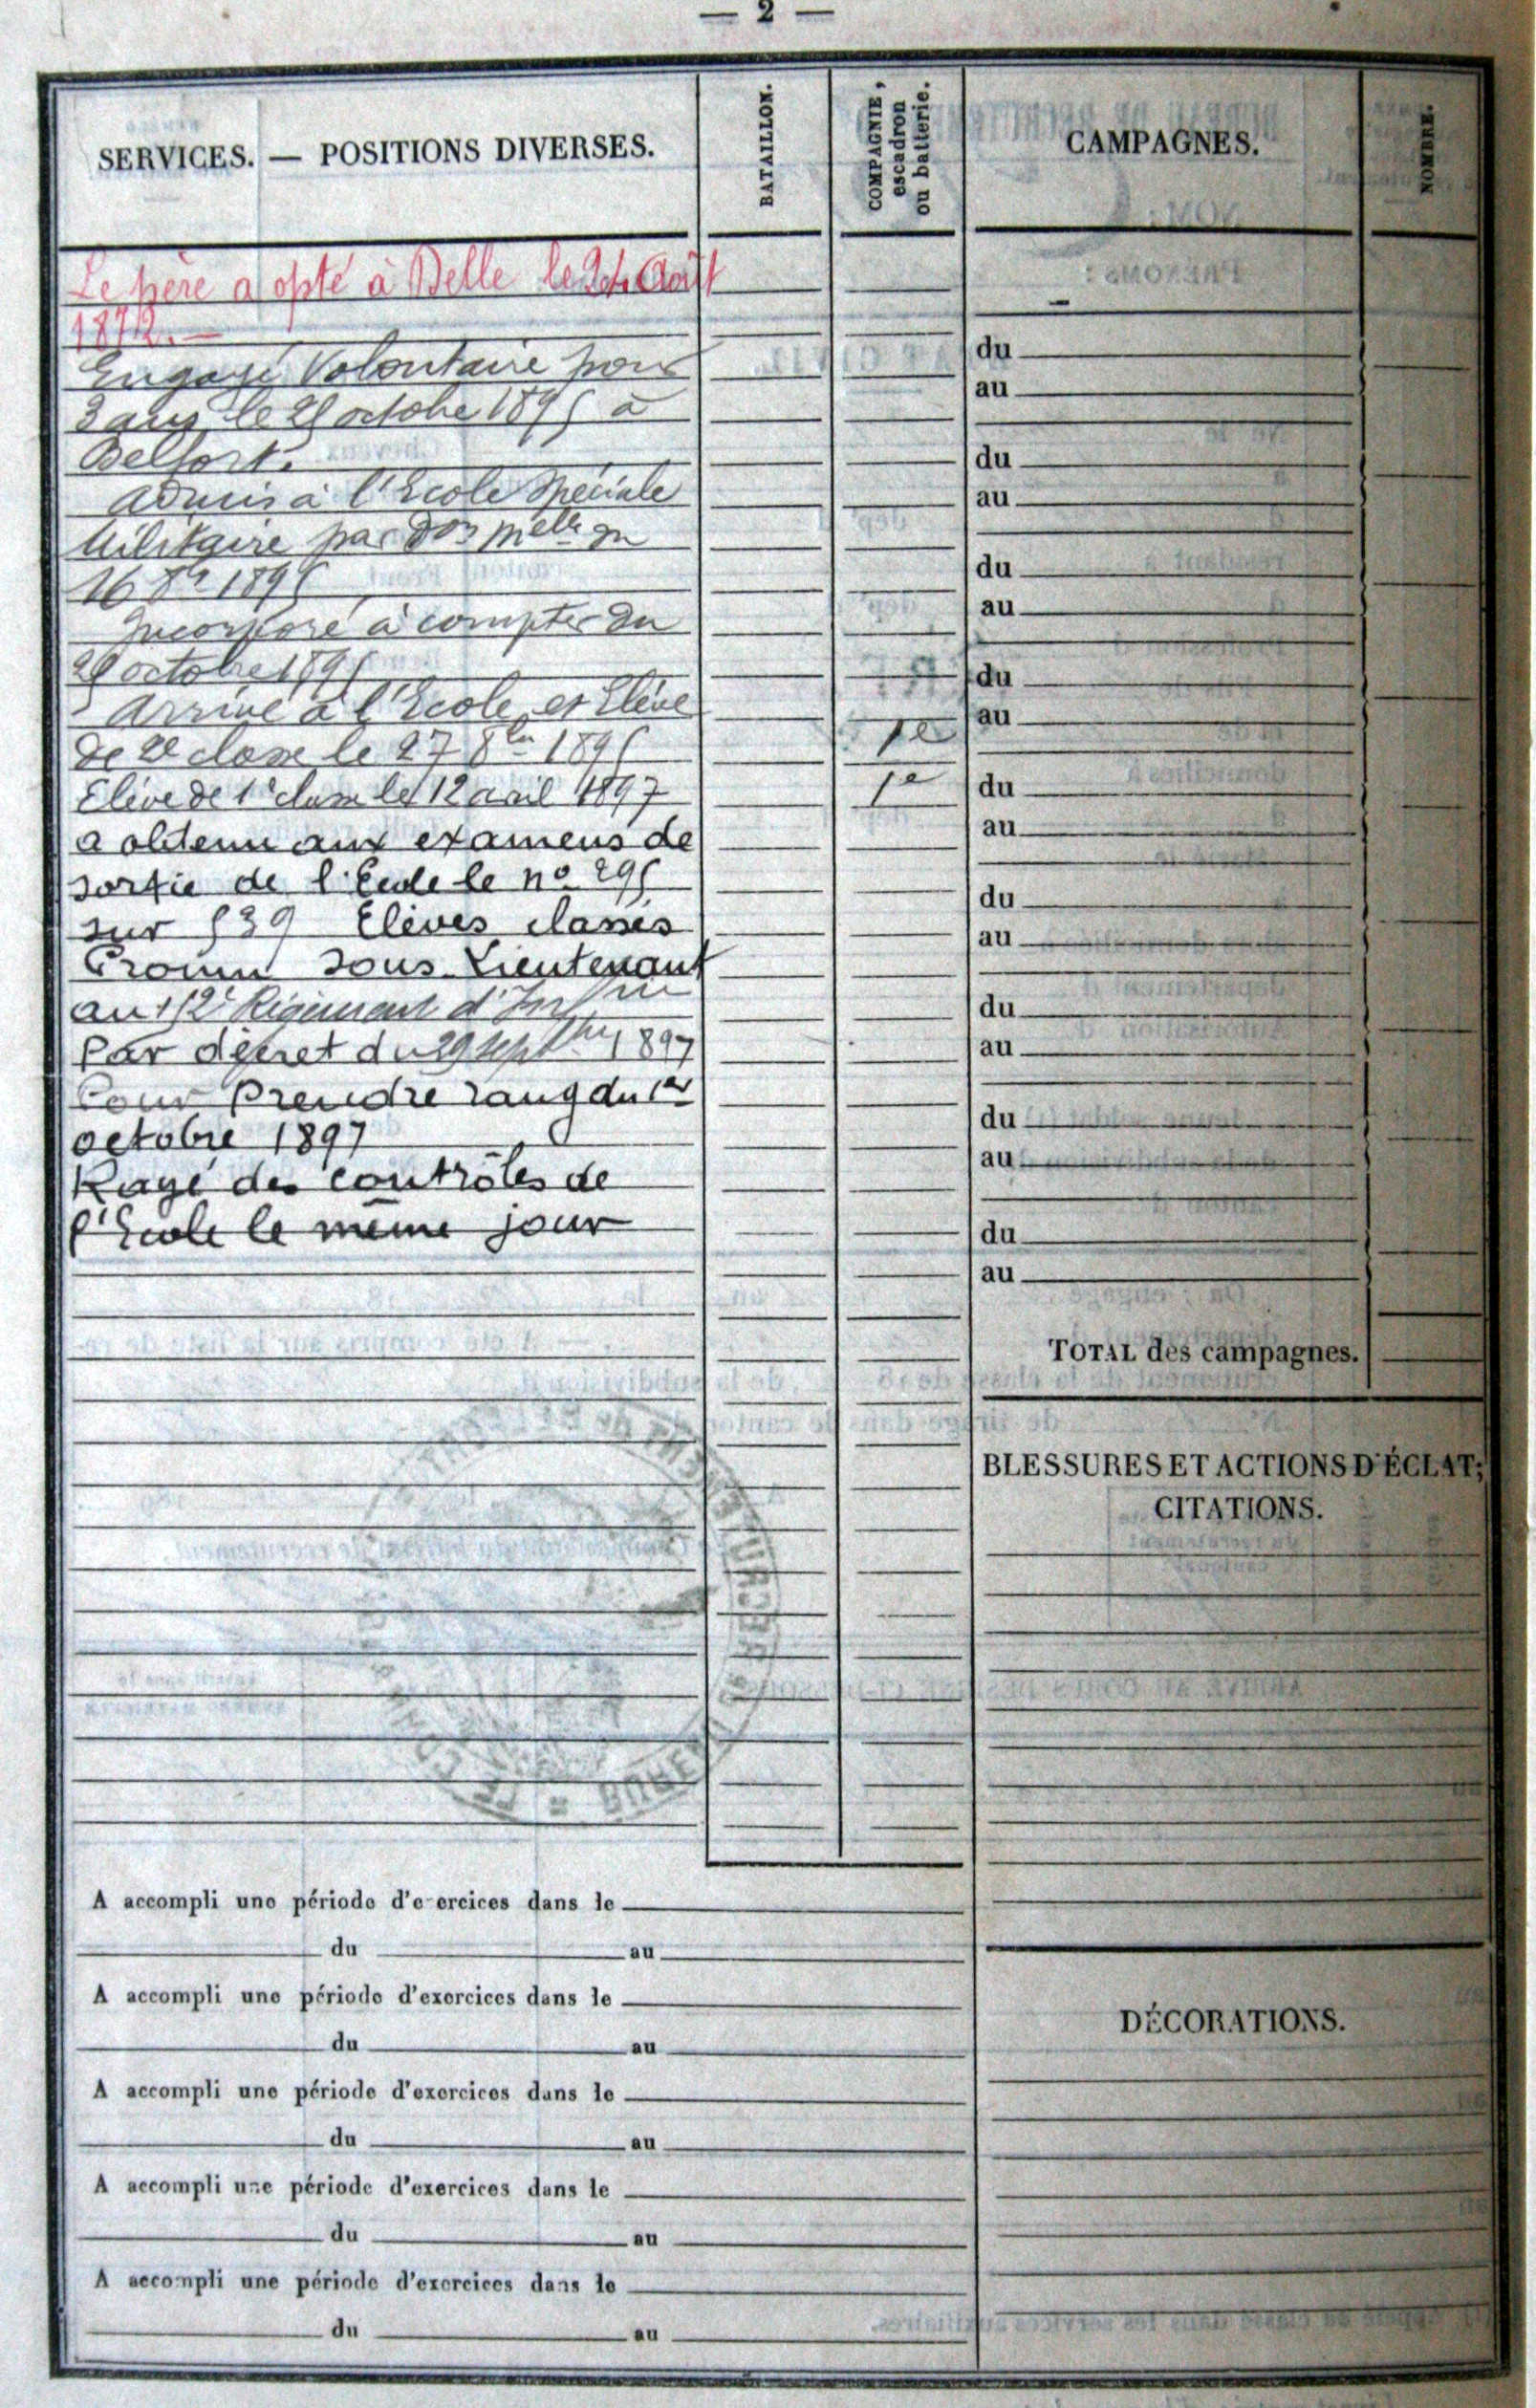 — 2 —
SERVICES. — POSITIONS DIVERSES.
BATAILLON.
COMPAGNIE,
escadron
ou batterie.
CAMPAGNES.
NOMBRE.
Le père a opté à Belle le Août
1872.
Engagé Volontaire pour
3 ans le octobre 189 à
Belfort.
Admis à l'Ecole Spéciale
Militaire par Don Melle du
16 8bre 189
Incorporé à compter du
octobre 189
Arrivé à l'Ecole et Elève
de 2e classe le 27 8bre 189
1e
Elève de 1e classe le 12 avril 1897
1e
a obtenu aux examens de
sortie de l'Ecole le no 29
sur 39 Elèves classés
Promu Sous-Lieutenant
au Régiment d'Inf
Par décret du 29 septbre 1897
Pour Prendre rang du 1er
octobre 1897
Rayé des contrôles de
l'Ecole le même jour
du
au
du
au
du
au
du
au
du
au
du
au
du
au
du
au
du
au
TOTAL des campagnes.
BLESSURES ET ACTIONS D'ÉCLAT;
CITATIONS.
A accompli une période d'e ercices dans le
du au
A accompli une période d'exercices dans le
du au
A accompli une période d'exercices dans le
du au
A accompli une période d'exercices dans le
du au
A accompli une période d'exercices dans le
du au
DÉCORATIONS.